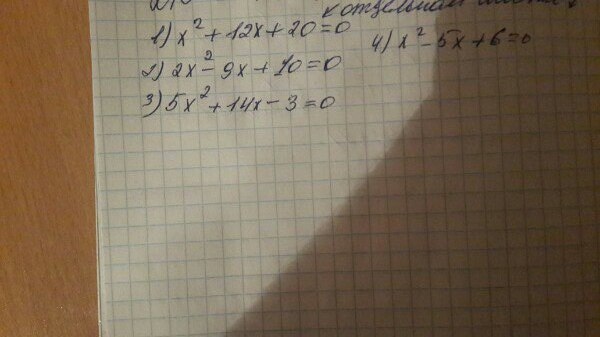 1) x² + 12x + 20 = 0
2) 2x² - 9x + 10 = 0
3) 5x² + 14x - 3 = 0
4) x² - 5x + 6 = 0